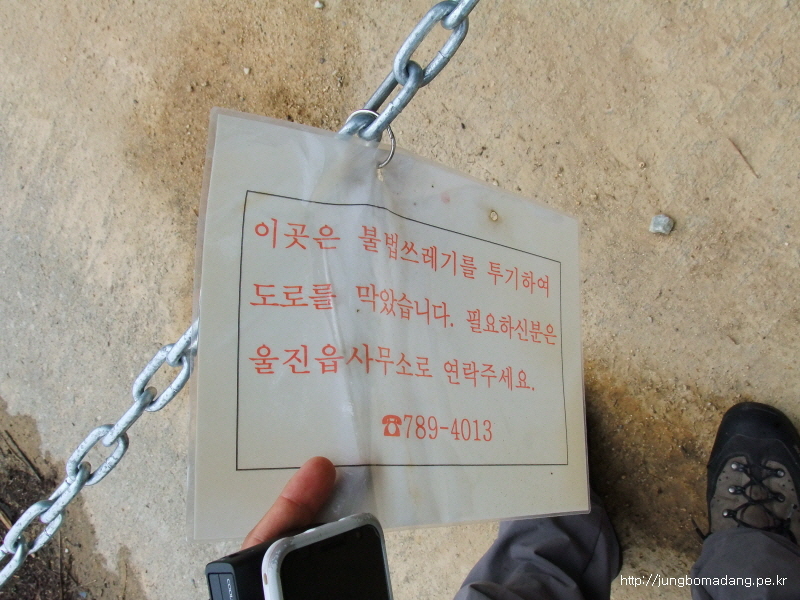 이곳은 불법쓰레기를 투기하여
도로를 막았습니다. 필요하신분은
울진읍사무소로 연락주세요.
☎789-4013
http://jungbomadang.pe.kr